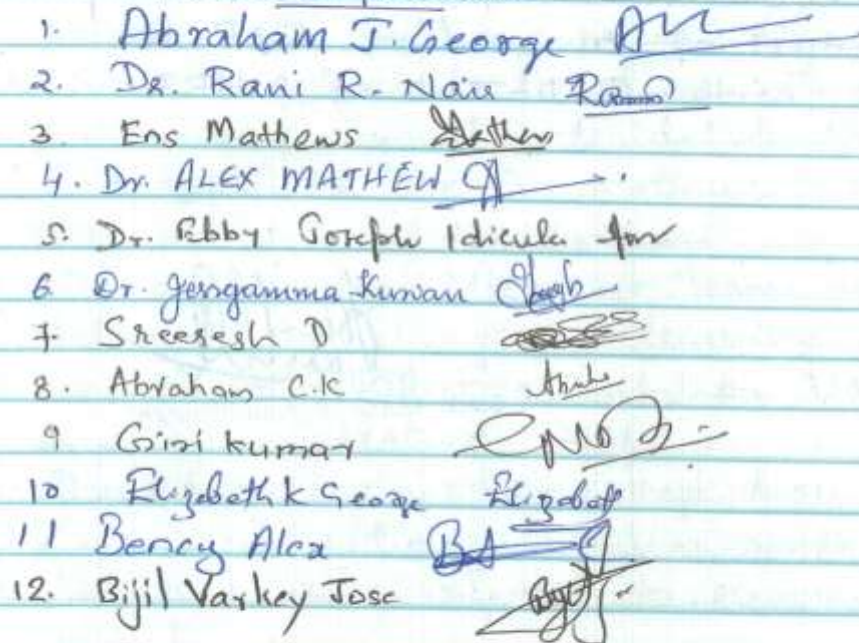 1. Abraham J. George
2. Dr. Rani R. Nair
3. Ens Mathews Mathew
4. Dr. ALEX MATHEW
5. Dr. Ebby Joseph Idicula
6. Dr. Jengamma Kurian
7. Sreeresh D
8. Abraham C.K
9. Giri kumar
10 Elizabeth k George Elizabeth
11 Bency Alex BA
12. Bijil Varkey Jose